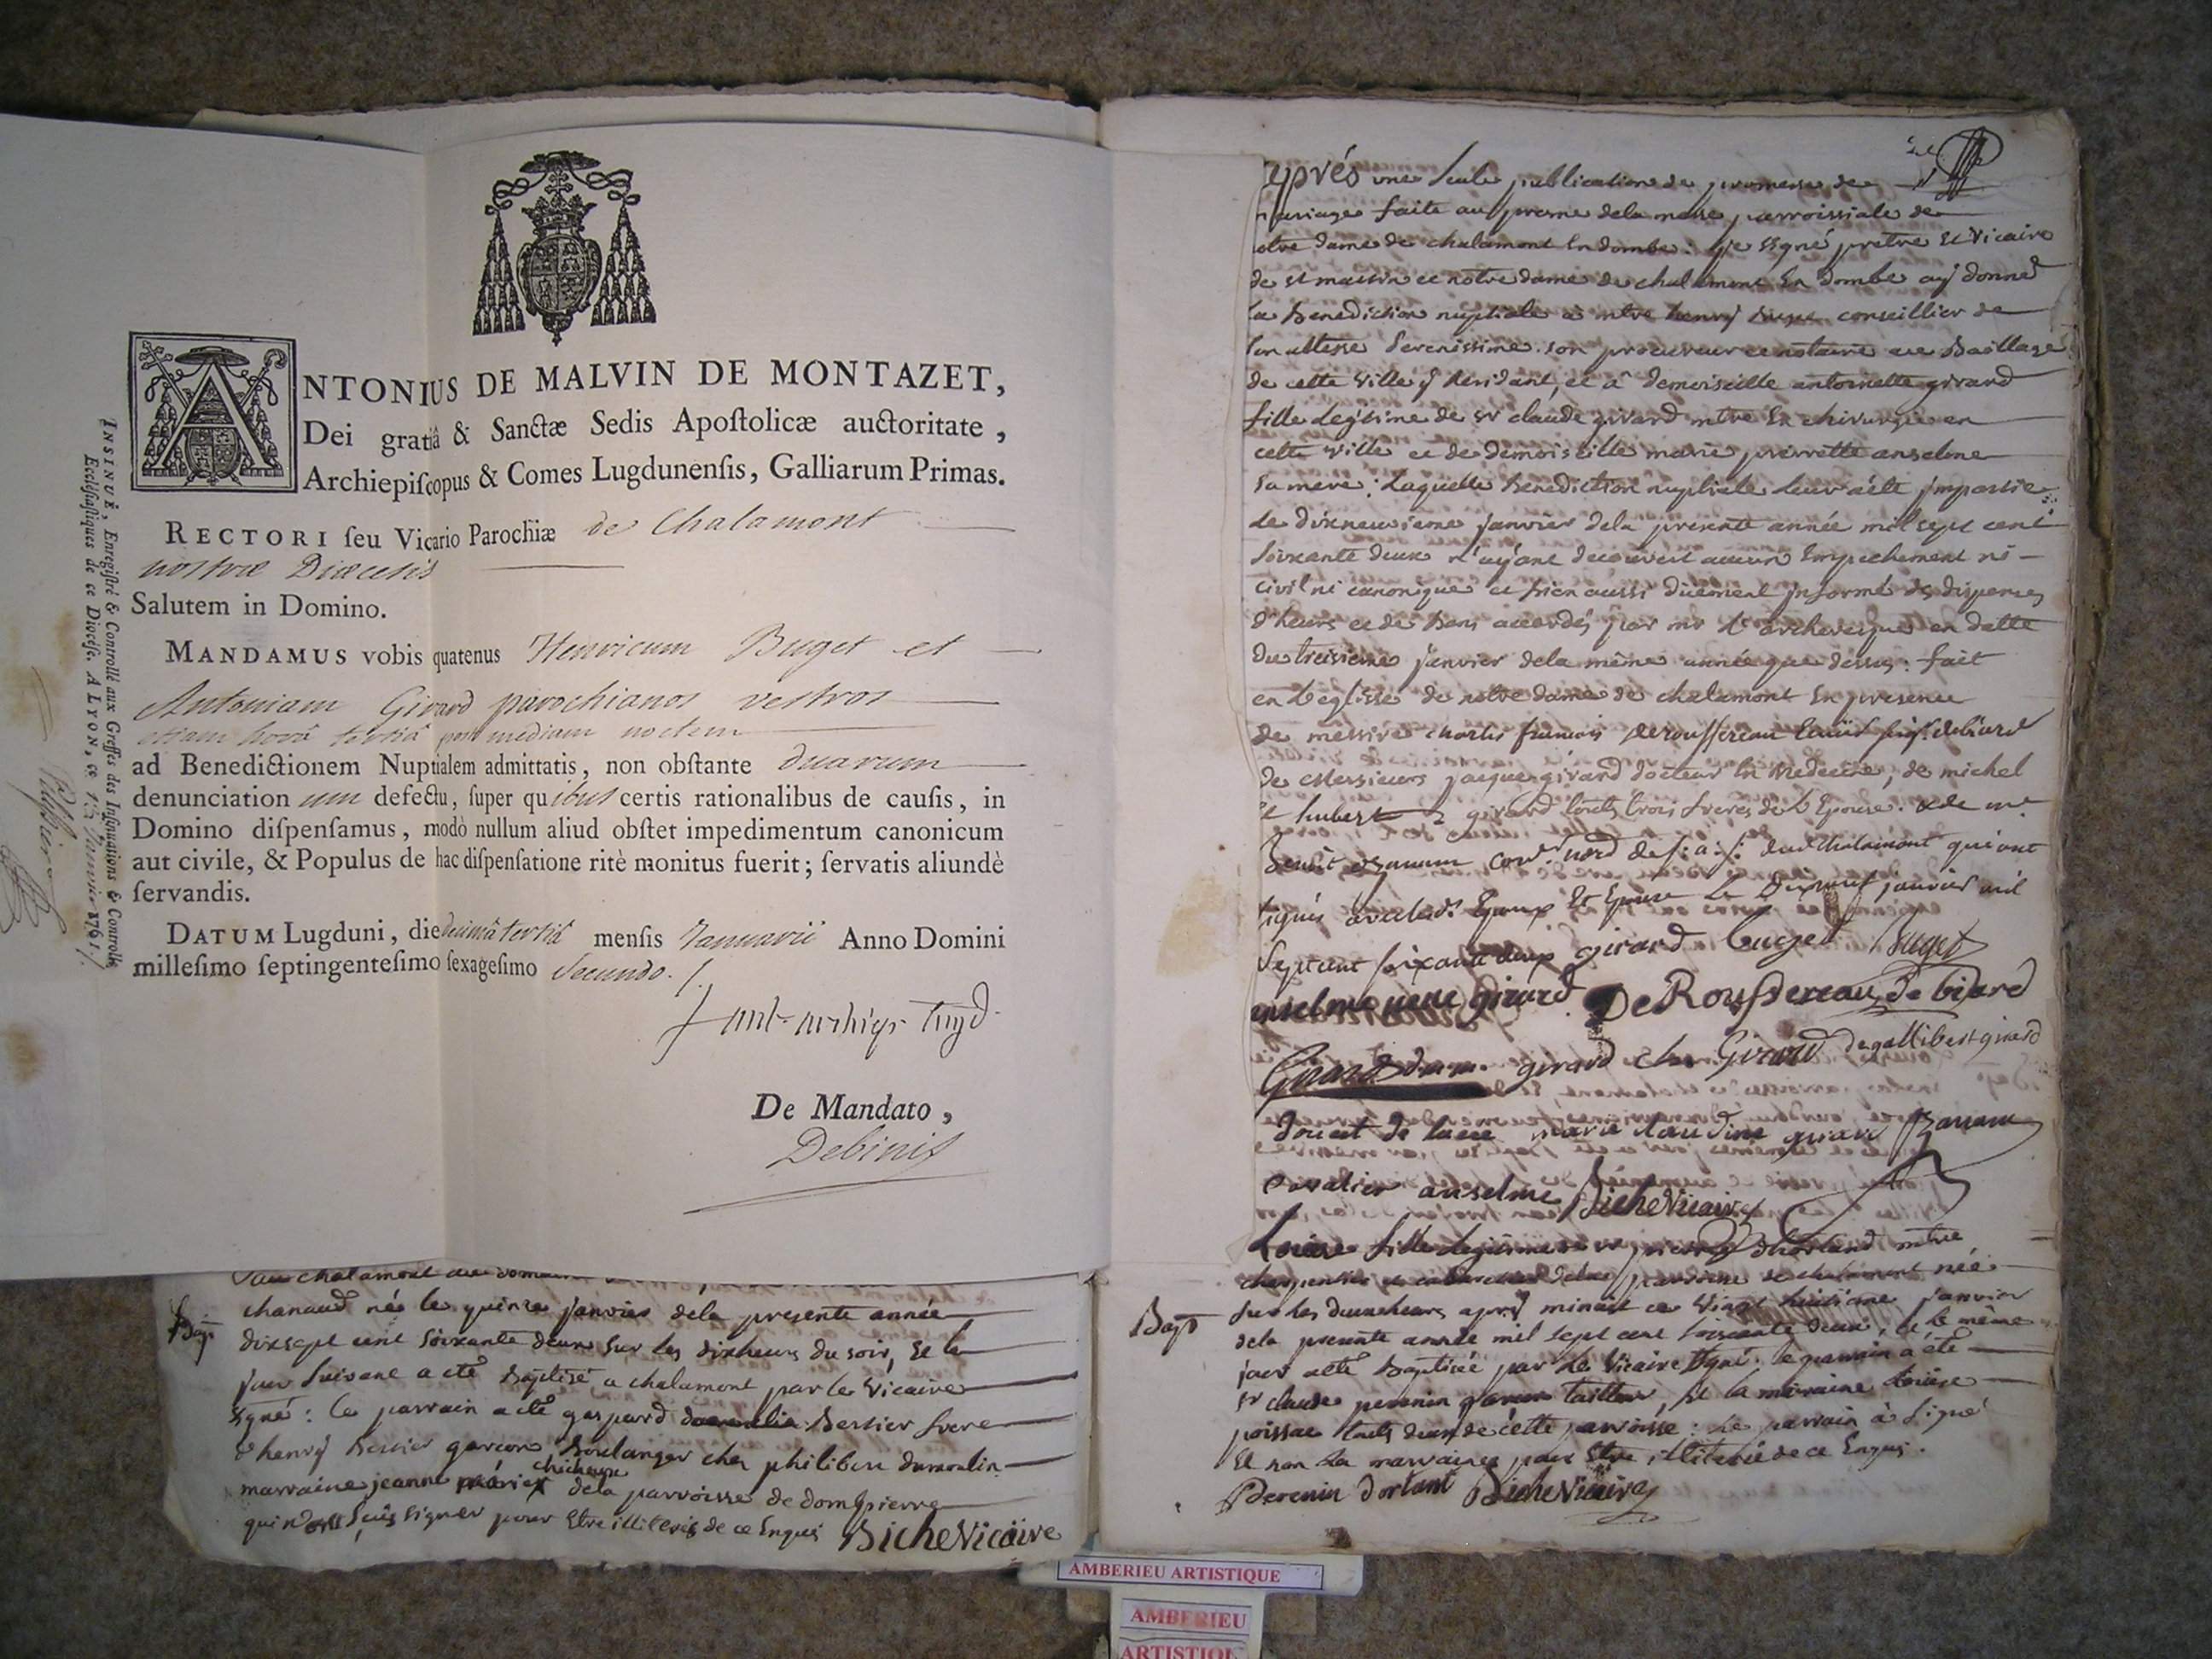 ANTONIUS DE MALVIN DE MONTAZET,
Dei gratiâ & Sanctæ Sedis Apoſtolicæ auctoritate,
Archiepiſcopus & Comes Lugdunenſis, Galliarum Primas.
RECTORI ſeu Vicario Parochiæ de Chalamont
nostræ Diœcesis
Salutem in Domino.
MANDAMUS vobis quatenus Henricum Buget et
Antoniam Girard parochianos vestros
etiam horâ tertiâ post mediam noctem
ad Benedictionem Nuptialem admittatis, non obſtante duarum
denunciationum defectu, ſuper quibus certis rationalibus de cauſis, in
Domino diſpenſamus, modò nullum aliud obſtet impedimentum canonicum
aut civile, & Populus de hac diſpenſatione ritè monitus fuerit; ſervatis aliundè
ſervandis.
DATUM Lugduni, die decimâ tertiâ mensis Januarii Anno Domini
milleſimo ſeptingenteſimo ſexageſimo Secundo.
De Mandato,
Debinis
INSINUÉ, Enregiſtré & Controllé aux Greffes des Inſinuations & Controlle
Eccléſiaſtiques de ce Dioceſe. A LYON, ce 13 Janvier 1762
chanaud né le quinze janvier dela presente année
dixsept cent soixante deux sur les dixheures du soir, et le
jour suivant a eté Baptisé a chalamont par le vicaire
sgné: le parrain a eté gaspard Bersier frere
d'henry Bersier garcon Boulanger chez philibert dumoulin
chicheux
marraine jeanne dela parroisse de dompierre
qui n'ont sçus signer pour etre illiterés de ce Enquis Biche Vicaire
Bap
aprés une seule publication de promesse de
mariage faite au prosne dela messe parroissiale de
notre dame de chalamont En dombe: je sgné pretre et vicaire
de st martin et notre dame de chalamont En dombe ay donné
la Benediction nuptiale à mtre henry Buget conseillier de
son altesse serenissime son procureur et notaire au Baillage
de cette ville y residant, et à demoiselle antoinette girard
fille legitime de sr claude girard mtre En chirurgie en
cette ville et de demoiselle marie pierrette anselme
sa mere: Laquelle Benediction nuptiale leur a eté impartie
le dixneuvieme janvier dela presente année mil sept cent
soixante deux n'ayant decouvert aucun Empechement ni
civil ni canonique et bien aussi duement informé des dispenses
d'heure et de Bans accordés par mr l'archeveque en datte
du treisieme janvier dela même année que dessus. fait
en l'eglise de notre dame de chalamont En presence
de messire charles francois deroussereau
de Messieurs jacque girard docteur En Medecine, de michel
et hubert girard touts trois freres de l'Epouse. & de mr
Benoit ozanam dud chalamont qui ont
signés avec lesd Epoux Et Epouse le Dixneuf janvier mil
Septcent soixante deux girard Buget Buget
anselme girard De Roussereau De Biard
Girard girard Girard degallibert girard
marie claudine girard Ozanam
cavalier anselme Biche Vicaire
Louise fille legitime de sr dhorland mtre
charpentier et cabaretier dela parroisse de chalamont née
Bap
sur les deux heures aprés minuit ce vingt huitieme janvier
dela presente année mil sept cent soixante deux, et le même
jour a eté Baptisée par le vicaire sgné: le parrain a eté
sr claude perenin garcon tailleur, et la marraine Louise
poissat touts deux de cette parroisse: Le parrain à signé
Et non La marraine pour Etre illiterée de ce Enquis.
Perenin dorlant Biche Vicaire
AMBERIEU ARTISTIQUE
AMBERIEU